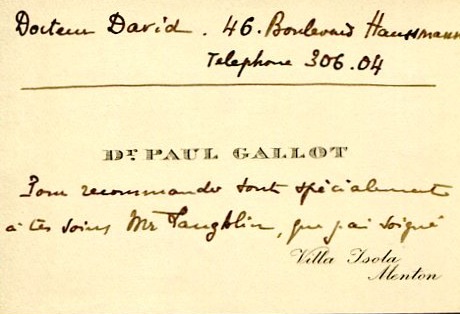 Docteur David . 46. Boulevard Haussmann
Telephone 306.04
Dr. PAUL GALLOT
Pour recommander tout spécialement
à tes soins Mr Laughlin, que j'ai soigné
Villa Isola
Menton